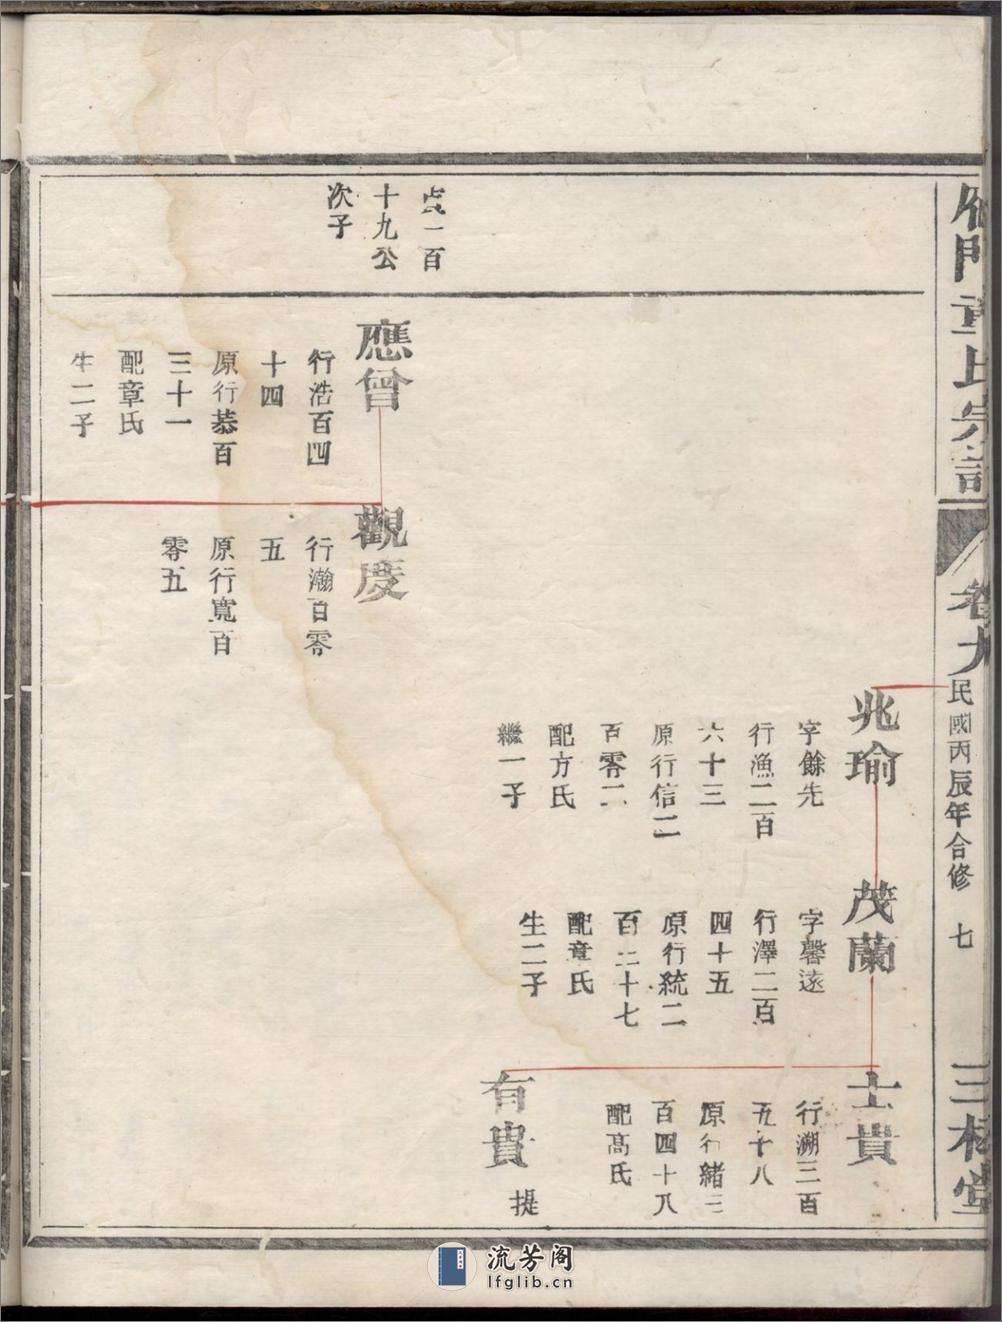 雁門童氏宗譜
卷九
民國丙辰年合修
七
三枝堂
兆瑜
字餘先
行漁二百
六十三
原行信二
百零二
配方氏
繼一子
茂蘭
字馨遠
行澤二百
四十五
原行統二
百二十七
配章氏
生二子
士貴
行溯三百
五十八
原行緒三
百四十八
配高氏
有貴
提
一百
十九公
次子
應曾
行浩百四
十四
原行恭百
三十一
配章氏
生二子
觀慶
行瀚百零
五
原行寬百
零五
流芳阁
lfglib.cn